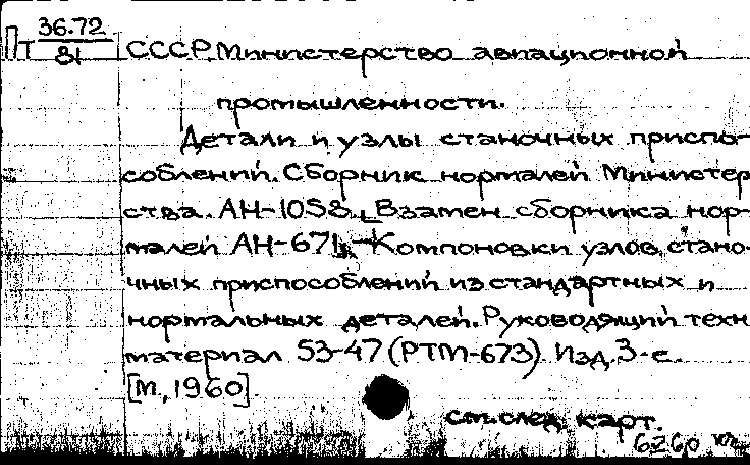 Пт 36.72
81
СССР. Министерство авиационной
промышленности.
Детали и узлы станочных приспо-
соблений. Сборник нормалей Министер
ства. АН-1058. [Взамен сборника нор-
малей АН-671]. - Компоновки узлов стано-
чных приспособлений из стандартных и
нормальных деталей. Руководящий техн
материал 53-47 (РТМ-673) Изд. 3-е.
[М., 1960].
см. след. карт.
6260